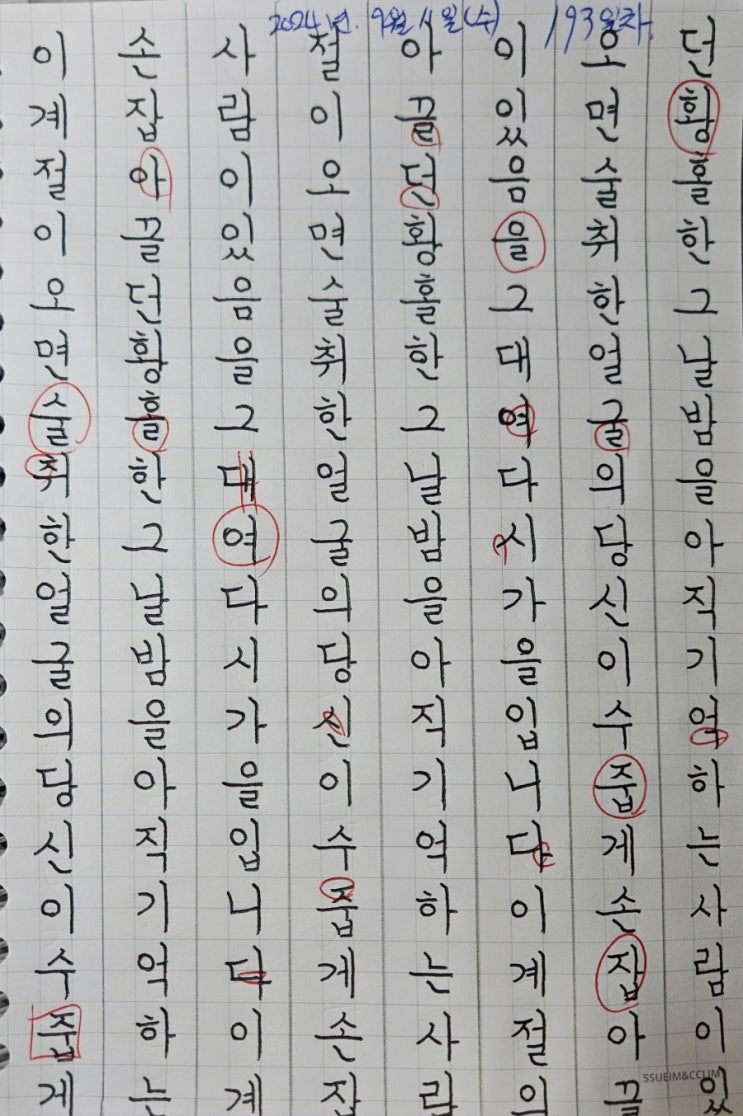 2024년. 9월 11일(수) 193일차.
이계절이오면술취한얼굴의당신이수줍게
손잡아끌던황홀한그날밤을아직기억하는
사람이있음을그대여다시가을입니다이계
절이오면술취한얼굴의당신이수줍게손잡
아끌던황홀한그날밤을아직기억하는사람
이있음을그대여다시가을입니다이계절이
오면술취한얼굴의당신이수줍게손잡아끌
던황홀한그날밤을아직기억하는사람이있
SSUEIM&CCLIM